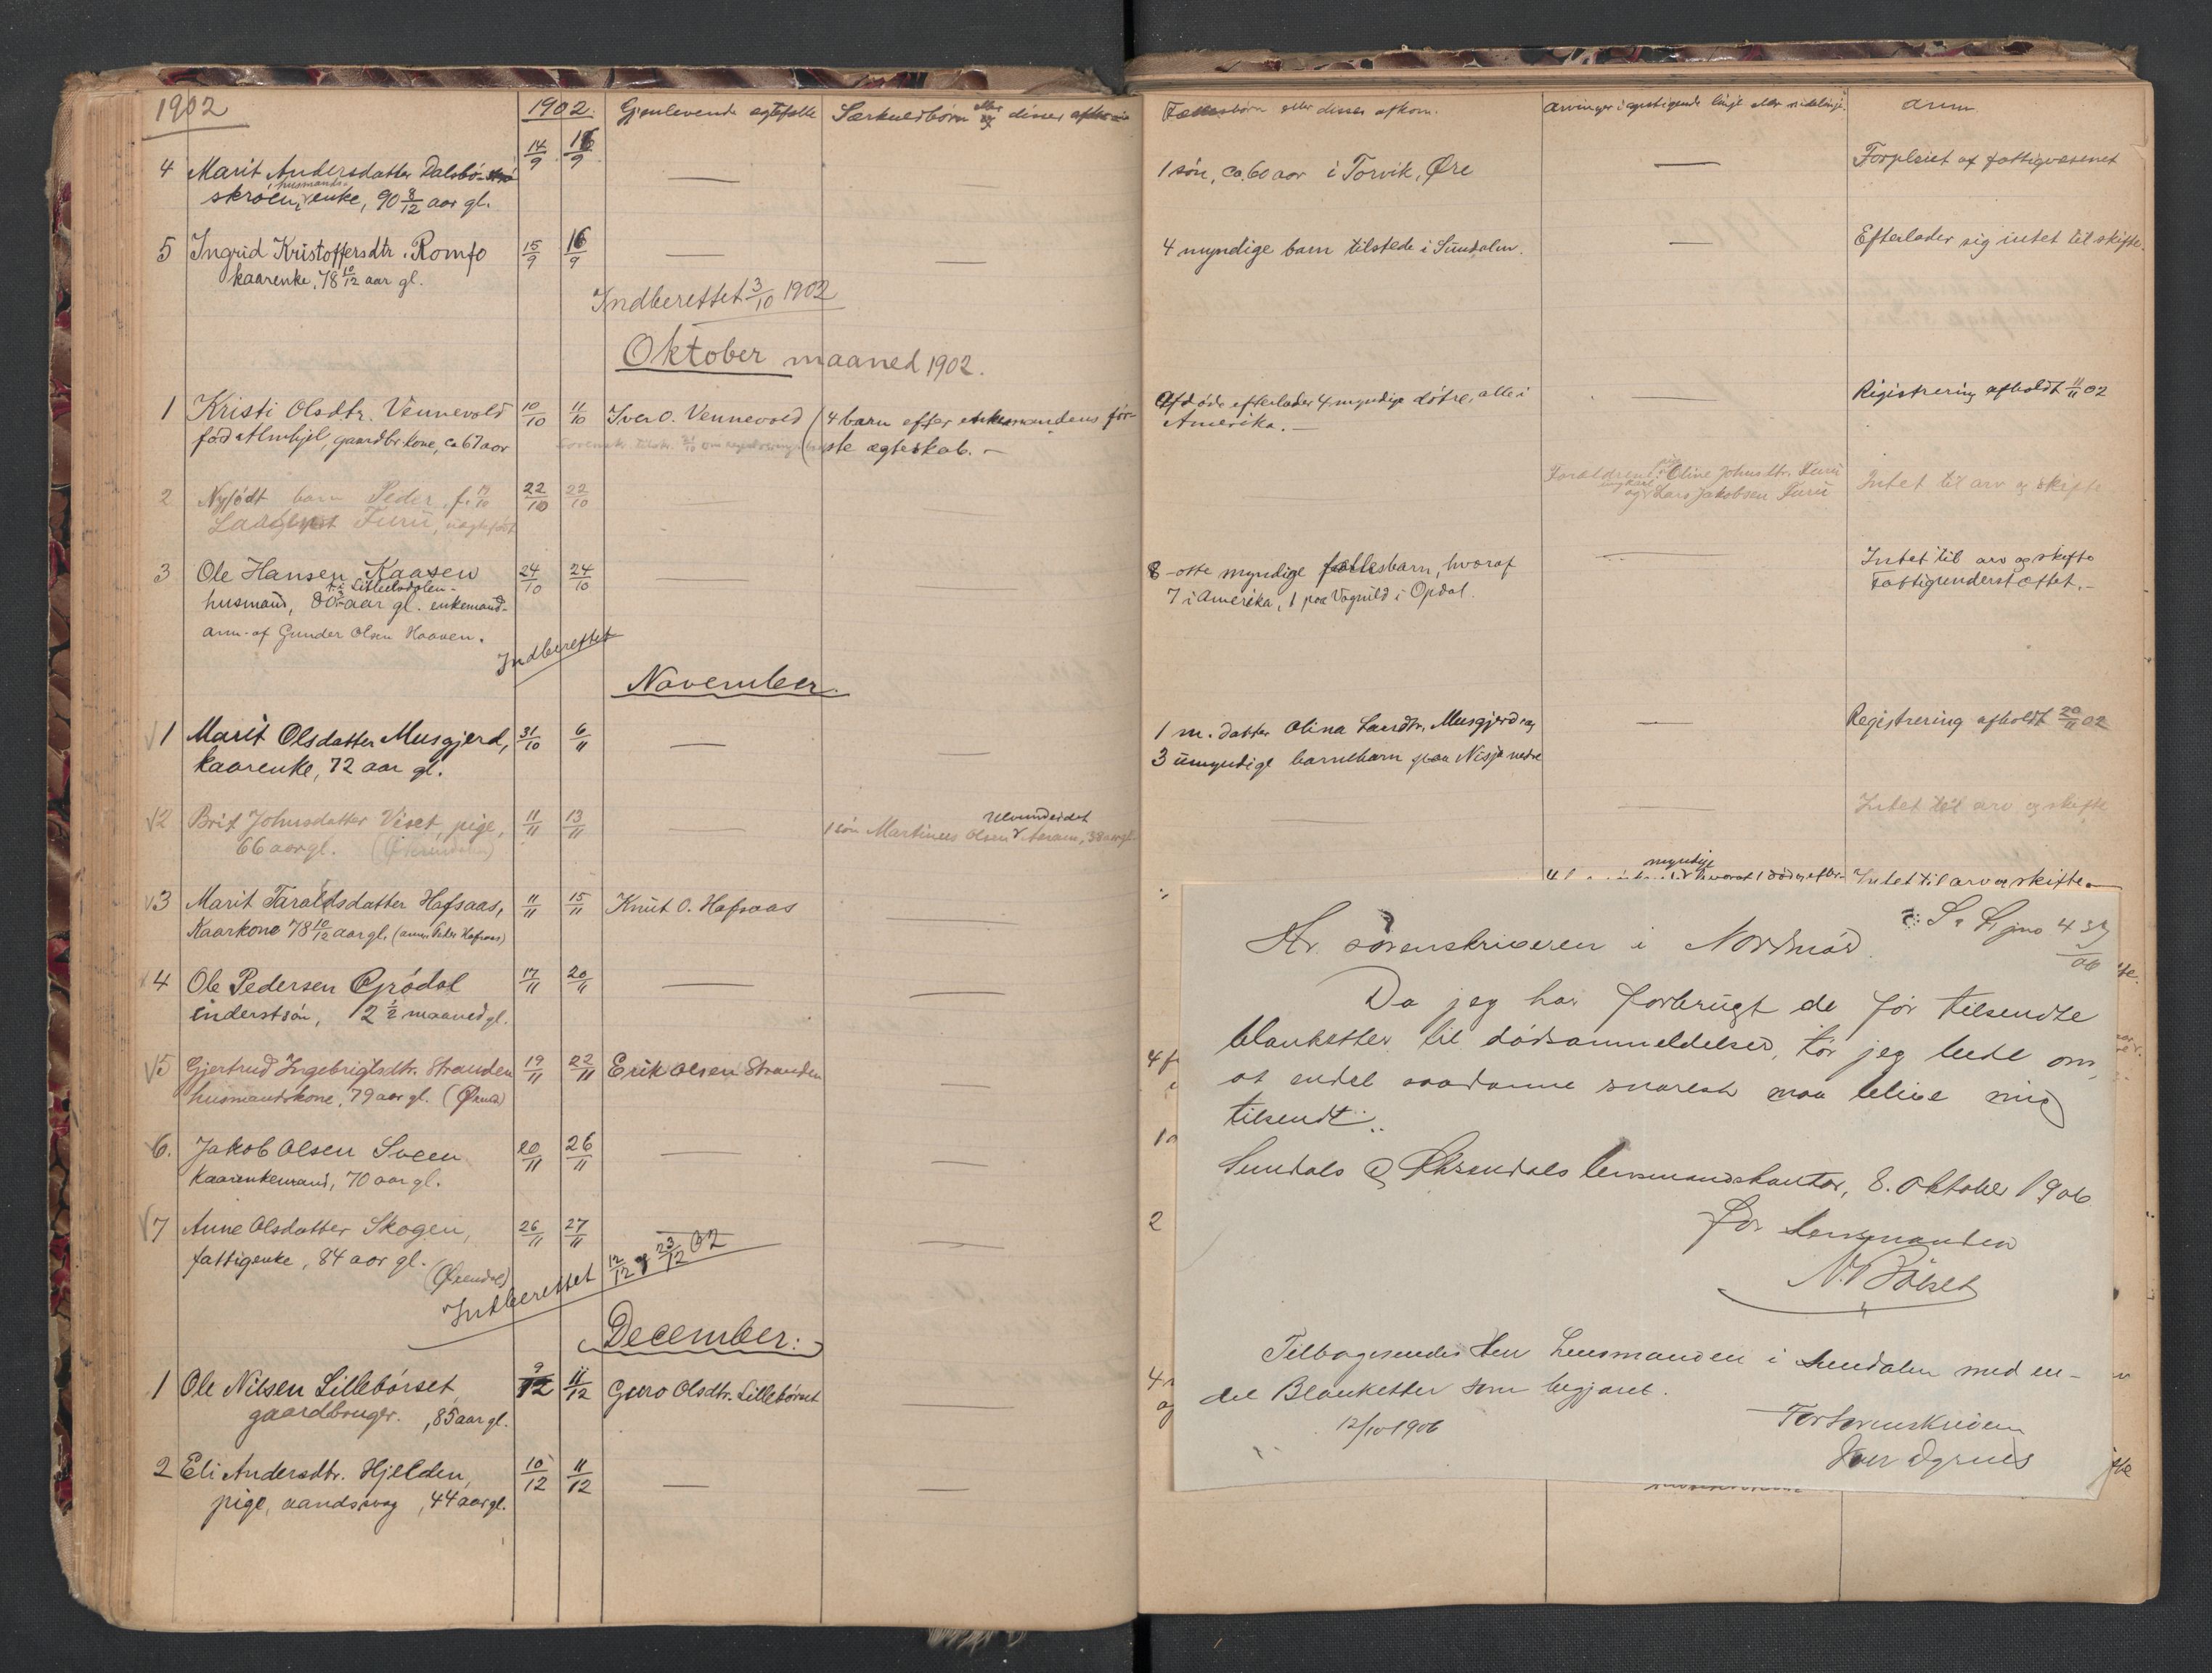 1902
1902. Gjenlevende egtefælle Særkuldbørn eller disses afkom
4 Marit Andersdatter Dalsbø- 14/9 16/9 —
skrøen, husmands-enke, 90 8/12 aar gl.
5 Ingrid Kristoffersdtr. Romfo 15/9 16/9 — —
kaarenke, 78 10/12 aar gl.
Indberettet 3/10 1902
Oktober maaned 1902.
1 Kristi Olsdtr. Vennevold 10/10 11/10 Iver O. Vennevold (4 barn efter enkemandens før-
fød Almhjel, gaardbr. kone, ca 67 aar ste ægteskab. —
2 Nyfødt barn Peder, f. 22/10 22/10
Furu,
3 Ole Hansen Kaasen 24/10 24/10
i Lilleelvdalen -
husmand, 80 aar gl. enkemand-
anm. af Gunder Olsen Haaven.
Indberettet
November.
√1 Marit Olsdatter Musgjerd, 31/10 6/11 — —
kaarenke, 72 aar gl.
√2 Brit Johnsdatter Viset, pige, 11/11 13/11 — 1 søn Martinus Olsen Aaram, 38 aar gl.
66 aar gl.
√3 Marit Taraldsdatter Hafsaas, 11/11 15/11 Knut O. Hafsaas —
Kaarkone 78 10/12 aar gl. (anm. Peder Hafsaas)
4 Ole Pedersen Grødal 17/11 20/11 — —
inderstsøn, 2 1/2 maaned gl.
√5 Gjertrud Ingebrigtsdtr. Stranden 19/11 22/11 Erik Olsen Stranden —
husmandskone, 79 aar gl. (Øxend.)
√6. Jakob Olsen Sveen 20/11 26/11 — —
Kaarenkemand, 70 aar gl.
√7 Anne Olsdatter Skogen, 26/11 27/11 — —
fattigenke, 84 aar gl.
(Øxendal)
Indberettet 12/12 & 23/12 02
December:
1 Ole Nilsen Lillebørset 9/12 11/12 Guro Olsdtr. Lillebørset —
gaardbruger. , 85 aar gl.
2 Eli Andersdtr. Hjelden, 10/12 11/12 — —
pige, aandssvag , 44 aar gl.
Fællesbørn eller disses afkom. Arvinger i opstigende linje eller sidelinje. Anm.
1 søn, ca. 60 aar i Torvik, Øre — Forpleiet af fattigvæsenet
4 myndige barn tilstede i Sundalen. — Efterlader sig intet til skifte.
Afdøde efterlader 4 myndige døtre, alle i Registrering afholdt 11/11 02
Amerika. —
Forældrene: pige Oline Johnsdtr. Furu
og ungkarl Lars Jakobsen Furu Intet til arv og skifte
8 - otte myndige fællesbarn, hvoraf — Intet til arv og skifte
7 i Amerika, 1 paa Vognild i Opdal. Fattigunderstøttet. —
1 m. datter Olina Larsdtr. Musgjerd og — Registrering afholdt 20/11 02
3 umyndige barnebarn paa Nisja nedre
— Intet til arv og skifte
myndige
hvoraf 1 død, efter- Intet til arv og skifte
S. L. jno 437/06
Hr. sorenskriveren i Nordmør.
Da jeg har forbrugt de før tilsendte
blanketter til dødsanmeldelser, tør jeg bede om,
at endel saadanne snarest maa blive mig
tilsendt.
Sundals & Øksendals lensmandskontor, 8. oktober 1906.
For Lensmanden
N. Bølset
Tilbagesendes Hr. Lensmanden i Sundalen med en-
del Blanketter som begjæret.
12/10 1906
For Sorenskriveren